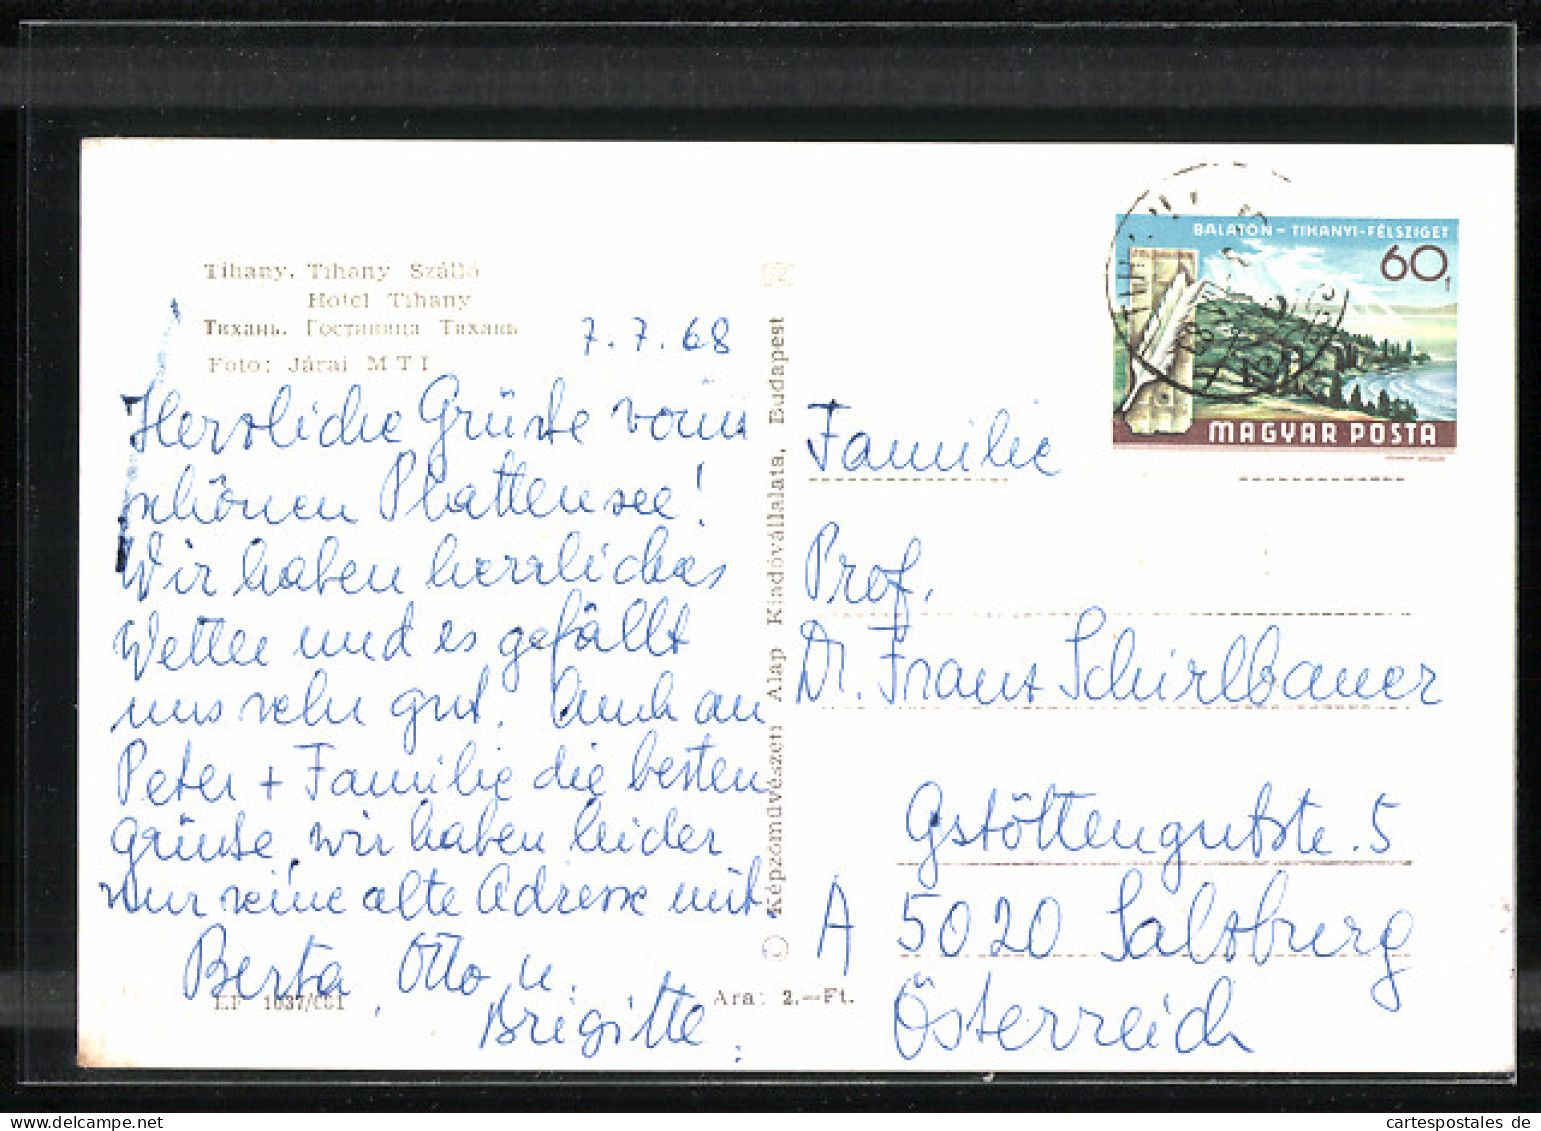 Tihany. Tihany Szálló
Hotel Tihany
Тихань. Гостиница Тихань
Foto: Járai MTI
7.7.68
Herzliche Grüsse vom
schönen Plattensee!
Wir haben herrliches
Wetter und es gefällt
uns sehr gut. Auch an
Peter + Familie die besten
Grüsse, wir haben leider
nur seine alte Adresse mit.
Berta, Otto u.
Brigitte.
EF 1037/681
Ara: 2.—Ft.
© Képzőművészeti Alap Kiadóvállalata, Budapest
BALATON – TIHANYI-FÉLSZIGET
60f
MAGYAR POSTA
Familie
Prof.
Dr. Franz Schirlbauer
Gstöttengutstr. 5
A 5020 Salzburg
Österreich
cartespostales.de